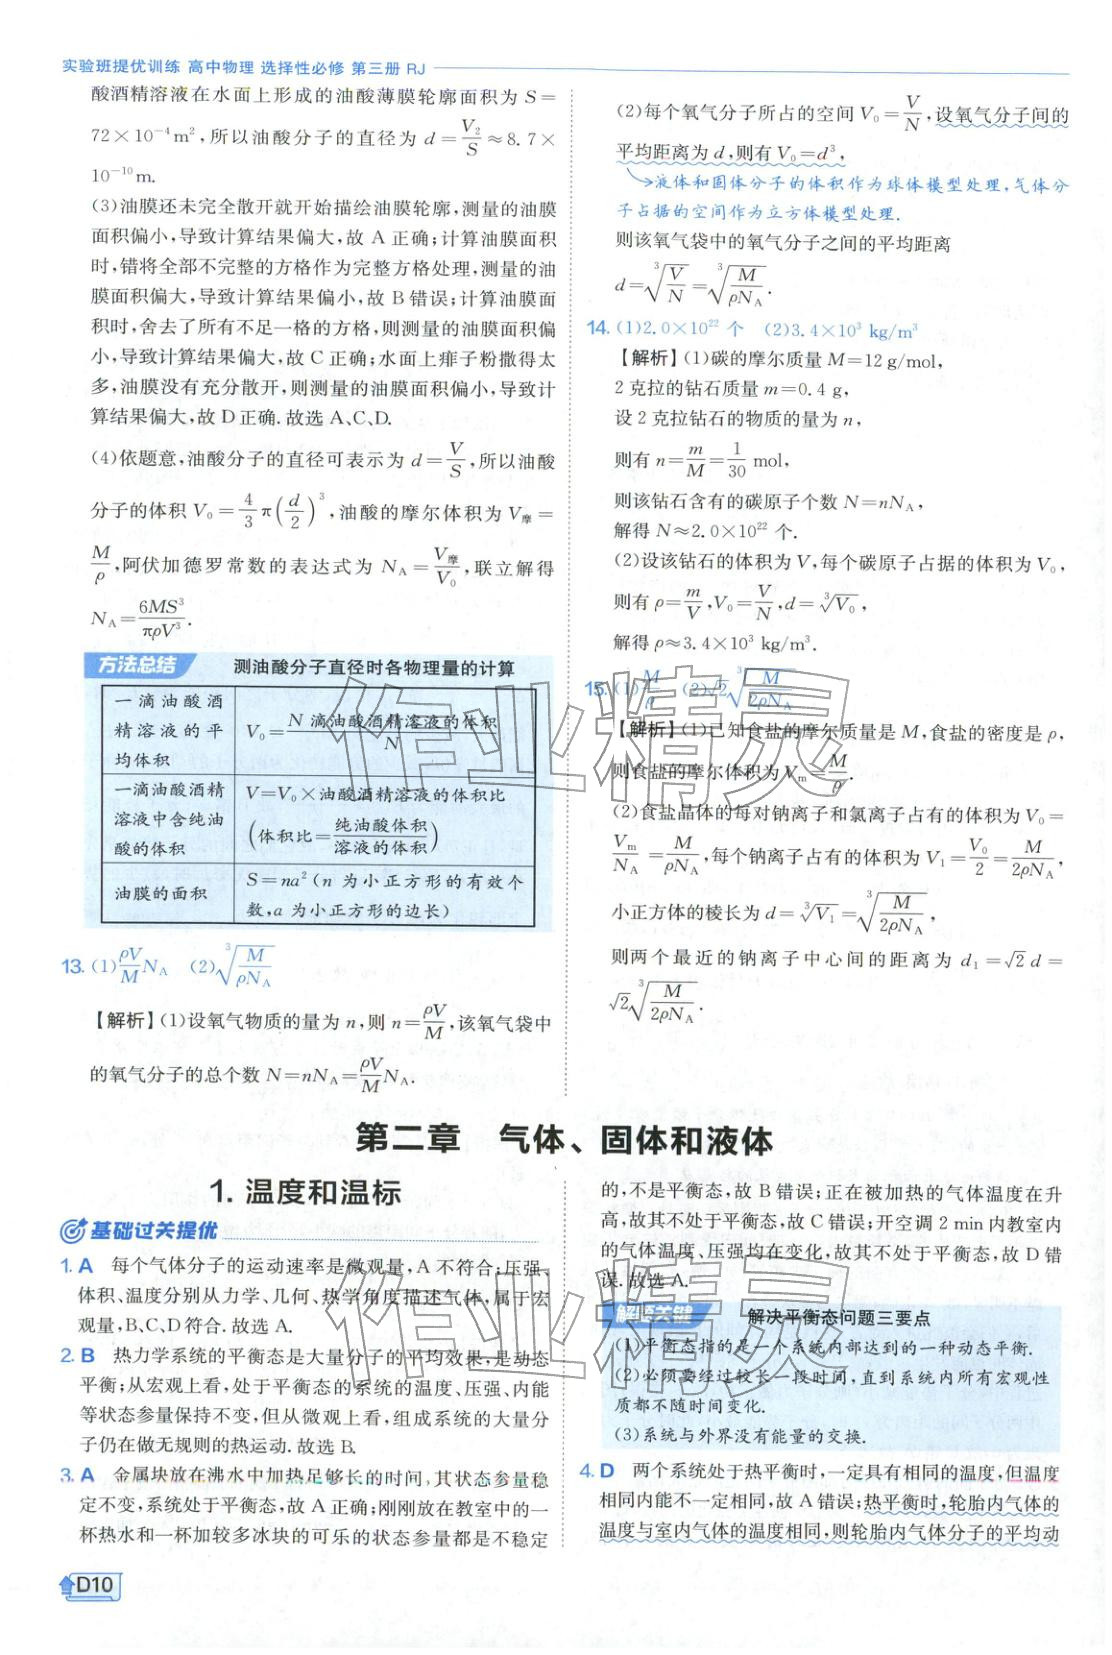 实验班提优训练 高中物理 选择性必修 第三册 RJ
酸酒精溶液在水面上形成的油酸薄膜轮廓面积为 S=
72×10⁻⁴ m²,所以油酸分子的直径为 d=V₂/S≈8.7×
10⁻¹⁰ m.
(3)油膜还未完全散开就开始描绘油膜轮廓,测量的油膜
面积偏小,导致计算结果偏大,故 A 正确;计算油膜面积
时,错将全部不完整的方格作为完整方格处理,测量的油
膜面积偏大,导致计算结果偏小,故 B 错误;计算油膜面
积时,舍去了所有不足一格的方格,则测量的油膜面积偏
小,导致计算结果偏大,故 C 正确;水面上痱子粉撒得太
多,油膜没有充分散开,则测量的油膜面积偏小,导致计
算结果偏大,故 D 正确.故选 A、C、D.
(4)依题意,油酸分子的直径可表示为 d=V/S,所以油酸
分子的体积 V₀=4/3π(d/2)³,油酸的摩尔体积为 V摩=
M/ρ,阿伏加德罗常数的表达式为 N_A=V摩/V₀,联立解得
N_A=6MS³/πρV³.
方法总结 测油酸分子直径时各物理量的计算
一滴油酸酒
精溶液的平
均体积
V₀=N 滴油酸酒精溶液的体积/N
一滴油酸酒精
溶液中含纯油
酸的体积
V=V₀×油酸酒精溶液的体积比
(体积比=纯油酸体积/溶液的体积)
油膜的面积
S=na²(n 为小正方形的有效个
数,a 为小正方形的边长)
13. (1)ρV/M N_A (2)∛(M/ρN_A)
【解析】(1)设氧气物质的量为 n,则 n=ρV/M,该氧气袋中
的氧气分子的总个数 N=nN_A=ρV/M N_A.
(2)每个氧气分子所占的空间 V₀=V/N,设氧气分子间的
平均距离为 d,则有 V₀=d³,
液体和固体分子的体积作为球体模型处理,气体分
子占据的空间作为立方体模型处理.
则该氧气袋中的氧气分子之间的平均距离
d=∛(V/N)=∛(M/ρN_A).
14. (1)2.0×10²² 个 (2)3.4×10³ kg/m³
【解析】(1)碳的摩尔质量 M=12 g/mol,
2 克拉的钻石质量 m=0.4 g,
设 2 克拉钻石的物质的量为 n,
则有 n=m/M=1/30 mol,
则该钻石含有的碳原子个数 N=nN_A,
解得 N≈2.0×10²² 个.
(2)设该钻石的体积为 V,每个碳原子占据的体积为 V₀,
则有 ρ=m/V,V₀=V/N,d=∛V₀,
解得 ρ≈3.4×10³ kg/m³.
15. (1)M/ρ (2)√2∛(M/2ρN_A)
【解析】(1)已知食盐的摩尔质量是 M,食盐的密度是 ρ,
则食盐的摩尔体积为 V_m=M/ρ.
(2)食盐晶体的每对钠离子和氯离子占有的体积为 V₀=
V_m/N_A=M/ρN_A,每个钠离子占有的体积为 V₁=V₀/2=M/2ρN_A,
小正方体的棱长为 d=∛V₁=∛(M/2ρN_A),
则两个最近的钠离子中心间的距离为 d₁=√2 d=
√2∛(M/2ρN_A).
第二章 气体、固体和液体
1. 温度和温标
基础过关提优
1. A 每个气体分子的运动速率是微观量,A 不符合;压强、
体积、温度分别从力学、几何、热学角度描述气体,属于宏
观量,B、C、D 符合.故选 A.
2. B 热力学系统的平衡态是大量分子的平均效果,是动态
平衡;从宏观上看,处于平衡态的系统的温度、压强、内能
等状态参量保持不变,但从微观上看,组成系统的大量分
子仍在做无规则的热运动.故选 B.
3. A 金属块放在沸水中加热足够长的时间,其状态参量稳
定不变,系统处于平衡态,故 A 正确;刚刚放在教室中的一
杯热水和一杯加较多冰块的可乐的状态参量都是不稳定
的,不是平衡态,故 B 错误;正在被加热的气体温度在升
高,故其不处于平衡态,故 C 错误;开空调 2 min 内教室内
的气体温度、压强均在变化,故其不处于平衡态,故 D 错
误.故选 A.
解题关键 解决平衡态问题三要点
(1)平衡态指的是一个系统内部达到的一种动态平衡.
(2)必须要经过较长一段时间,直到系统内所有宏观性
质都不随时间变化.
(3)系统与外界没有能量的交换.
4. D 两个系统处于热平衡时,一定具有相同的温度,但温度
相同内能不一定相同,故 A 错误;热平衡时,轮胎内气体的
温度与室内气体的温度相同,则轮胎内气体分子的平均动
D10
作业精灵
作业精灵